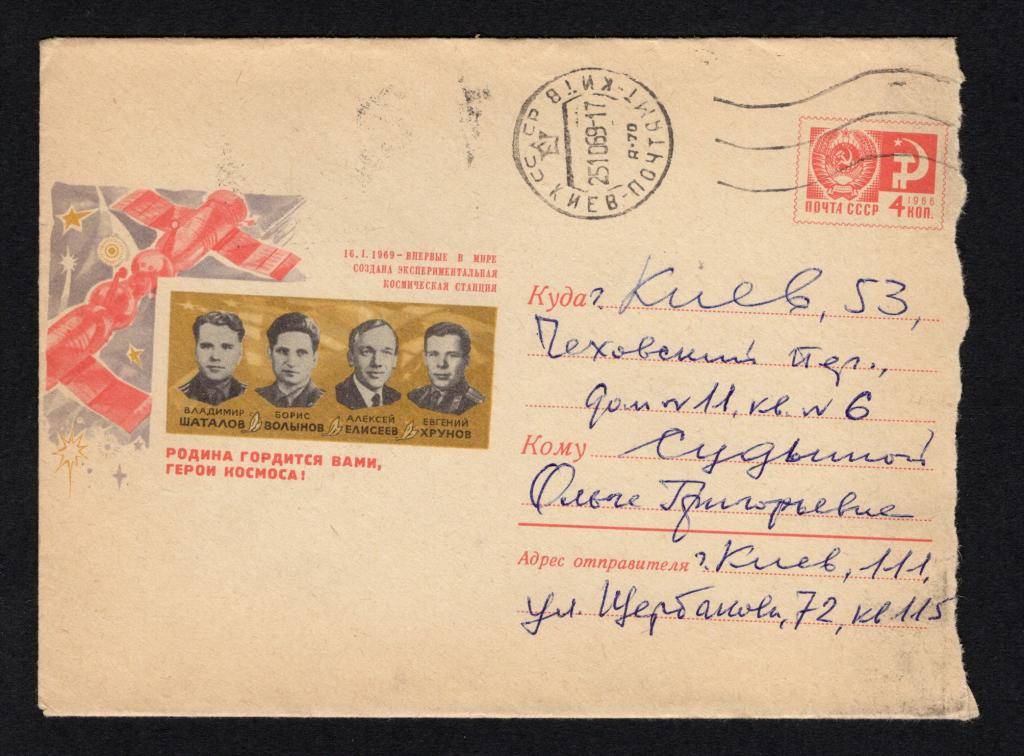 СССР КИЇВ-ПОЧТАМТ
КИЕВ-ПОЧТАМТ
251069-17
Я-70
ПОЧТА СССР
1966
4 КОП.
16.I.1969-ВПЕРВЫЕ В МИРЕ
СОЗДАНА ЭКСПЕРИМЕНТАЛЬНАЯ
КОСМИЧЕСКАЯ СТАНЦИЯ
ВЛАДИМИР ШАТАЛОВ
БОРИС ВОЛЫНОВ
АЛЕКСЕЙ ЕЛИСЕЕВ
ЕВГЕНИЙ ХРУНОВ
РОДИНА ГОРДИТСЯ ВАМИ,
ГЕРОИ КОСМОСА!
Куда г. Киев, 53,
Чеховский пер.,
дом №11, кв. №6
Кому Судьиной
Ольге Григорьевне
Адрес отправителя г. Киев, 111,
ул. Щербакова, 72, кв 115